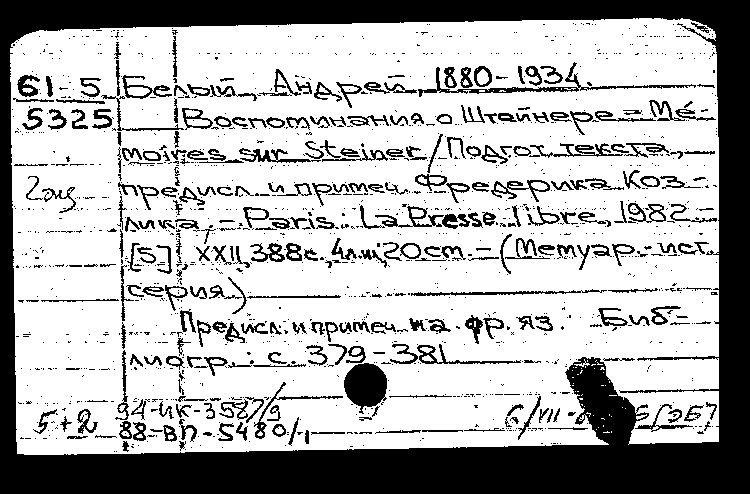 61-5 Белый, Андрей, 1880-1934.
5325 Воспоминания о Штейнере = Mé-
moires sur Steiner / Подгот. текста,
предисл. и примеч. Фредерика Коз-
2 экз
лика, - Paris: La Presse libre, 1982.-
[5], XXII, 388 с., 4 л. ил; 20 cm. - (Мемуар.-ист.
серия)
Предисл. и примеч. на фр. яз. Биб-
лиогр.: с. 379-381
5+2 94-ИК-3587/9
88-ВП-5480/1